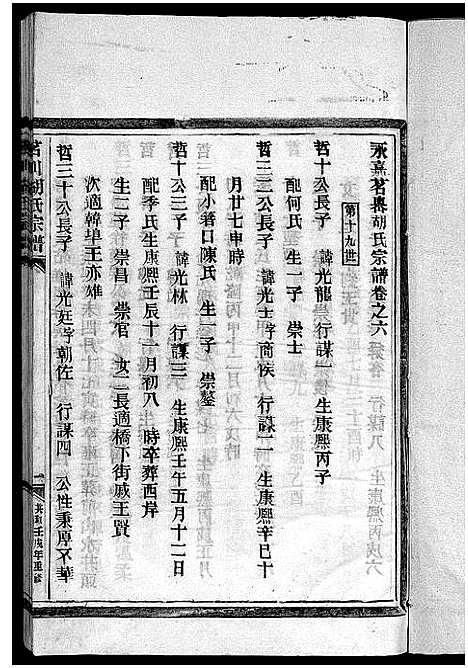 永嘉茗㟧胡氏宗譜卷之六
第十九世
哲十公長子 諱光龍 行謀一 生康熙丙子
配何氏 生一子 崇士
哲三三公長子 諱光士 字商侯 行謀二 生康熙辛巳十
月廿七申時
配小箬口陳氏 生一子 崇鏊
哲十公三子 諱光林 行謀三 生康熙壬午五月十二日
配季氏生康熙壬辰十一月初八 時卒葬西岸
生二子 崇昌 崇官 女二長適橋下街戚王賢
次適韓埠王亦雄
哲三十公長子 諱光廷字朝佐 行謀四 公性秉厚不華
茗川胡氏宗譜
一
壬戌年重修